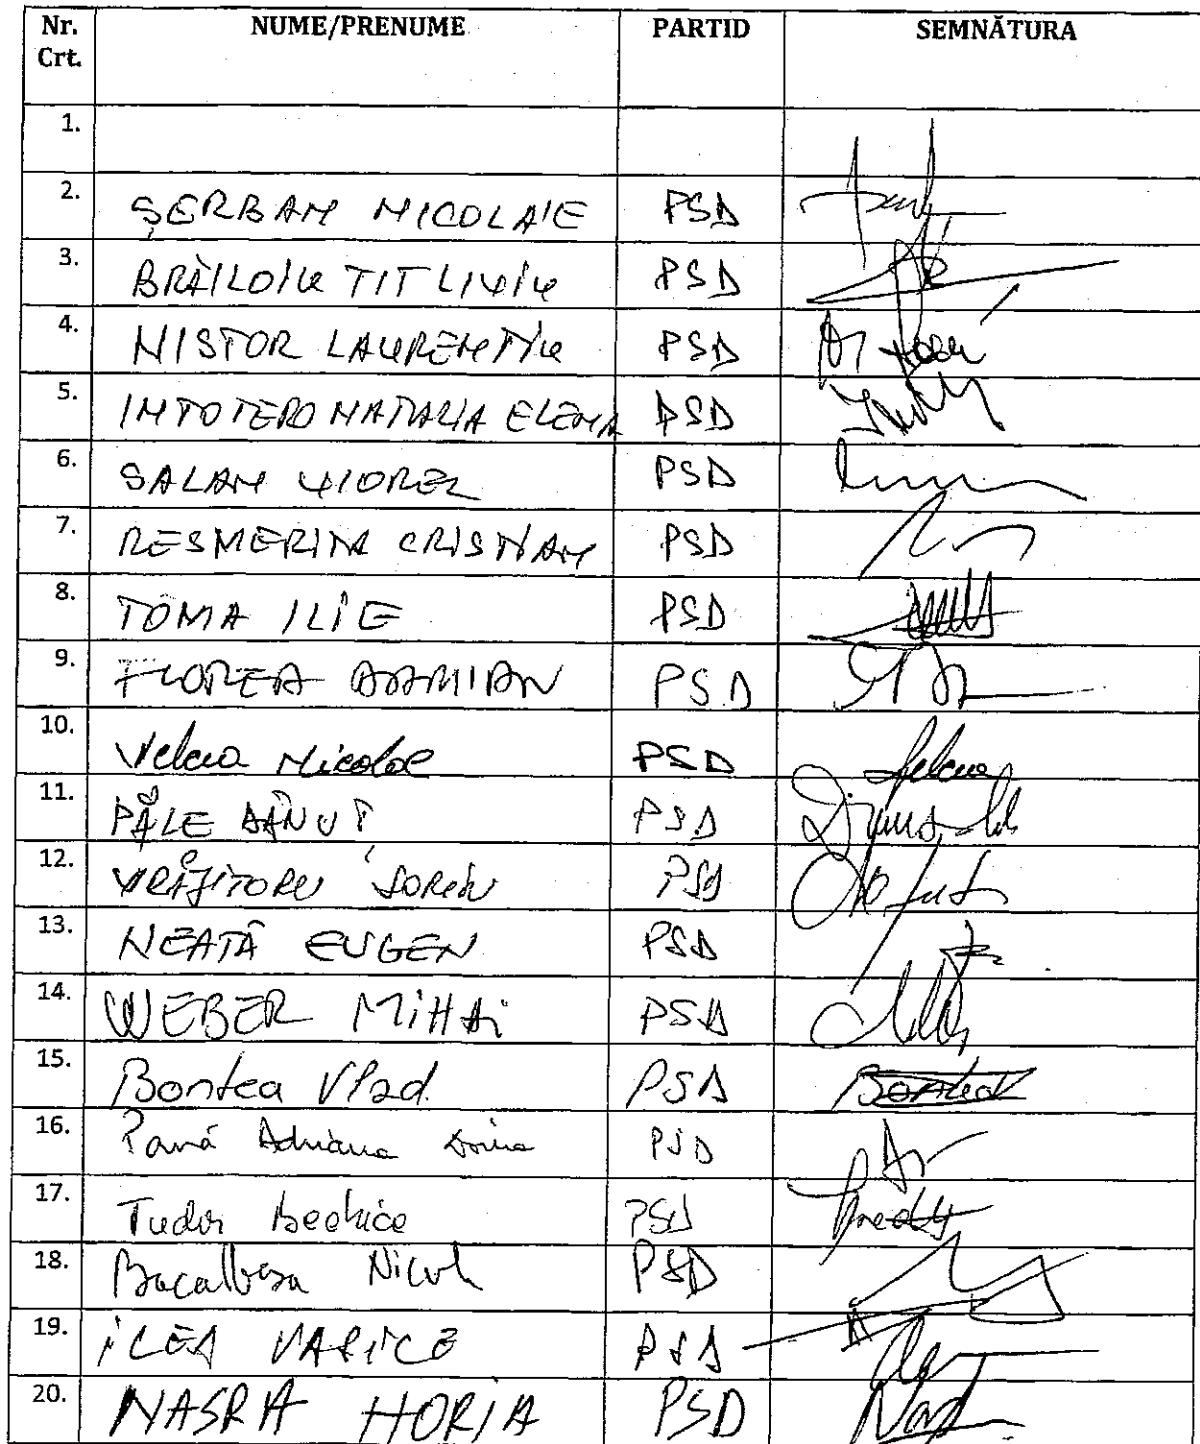 Nr. Crt. NUME/PRENUME PARTID SEMNĂTURA
1.
2. ȘERBAN NICOLAIE PSD
3. BRĂILOIU TIT LIVIU PSD
4. NISTOR LAURENȚIU PSD
5. INTOTERO NATALIA ELENA PSD
6. SALAN VIOREL PSD
7. RESMERIȚA CRISTIAN PSD
8. TOMA ILIE PSD
9. FLOREA DAMIAN PSD
10. Velcea Nicolae PSD Velcea
11. PĂLE DĂNUȚ PSD
12. VRĂJITORU SORIN PSD
13. NEAȚĂ EUGEN PSD
14. WEBER MIHAI PSD
15. Bontea Vlad PSD Bontea
16. Pană Adriana Doina PSD
17. Tudor Beatrice PSD
18. Bacalbașa Nicol PSD
19. ILEA VASILE PSD
20. NASRA HORIA PSD